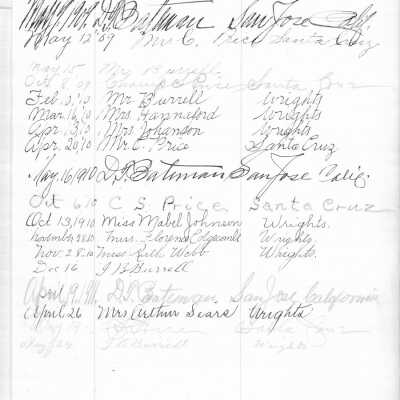 May 1909 D.T. Bateman San Jose Calif.
May 12 '09 Mrs C. Price Santa Cruz
May 15 Mrs Burrell
Oct '09 C. Price Santa Cruz
Feb. 10, '10 Mr Burrell Wrights
Mar. 16, '10 Mrs Hanneford Wrights
Apr. 13, '10 Mrs Johanson Wrights
Apr. 20, '10 Mr C. Price Santa Cruz
May, 16, 1910 D.T. Bateman San Jose Calif.
Oct 6 10 C S Price Santa Cruz
Oct 13, 1910 Miss Mabel Johnson Wrights.
November 28 10 Miss. Florence Edgecomb Wrights.
Nov. 28 10 Miss Ruth Webb Wrights.
Dec 16 J B Burrell
April, 19, '11. D.T. Bateman San Jose California
April 26 Mrs Arthur Sears Wrights
May 19 Santa Cruz
May 24 J B Burrell Wrights